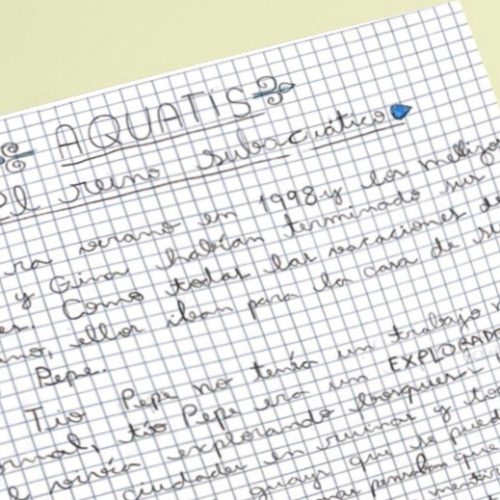 AQUATIS
El reino subacuático
ra verano en 1998 y los mellizos
y Gina habían terminado sus
es. Como todas las vacaciones de
no, ellos iban para la casa de su
Pepe.
Tío Pepe no tenía un trabajo
normal, tío Pepe era un EXPLORADO
él vivía explorando bosques
ciudades en ruinas y to
guays que se pue
pensaban que